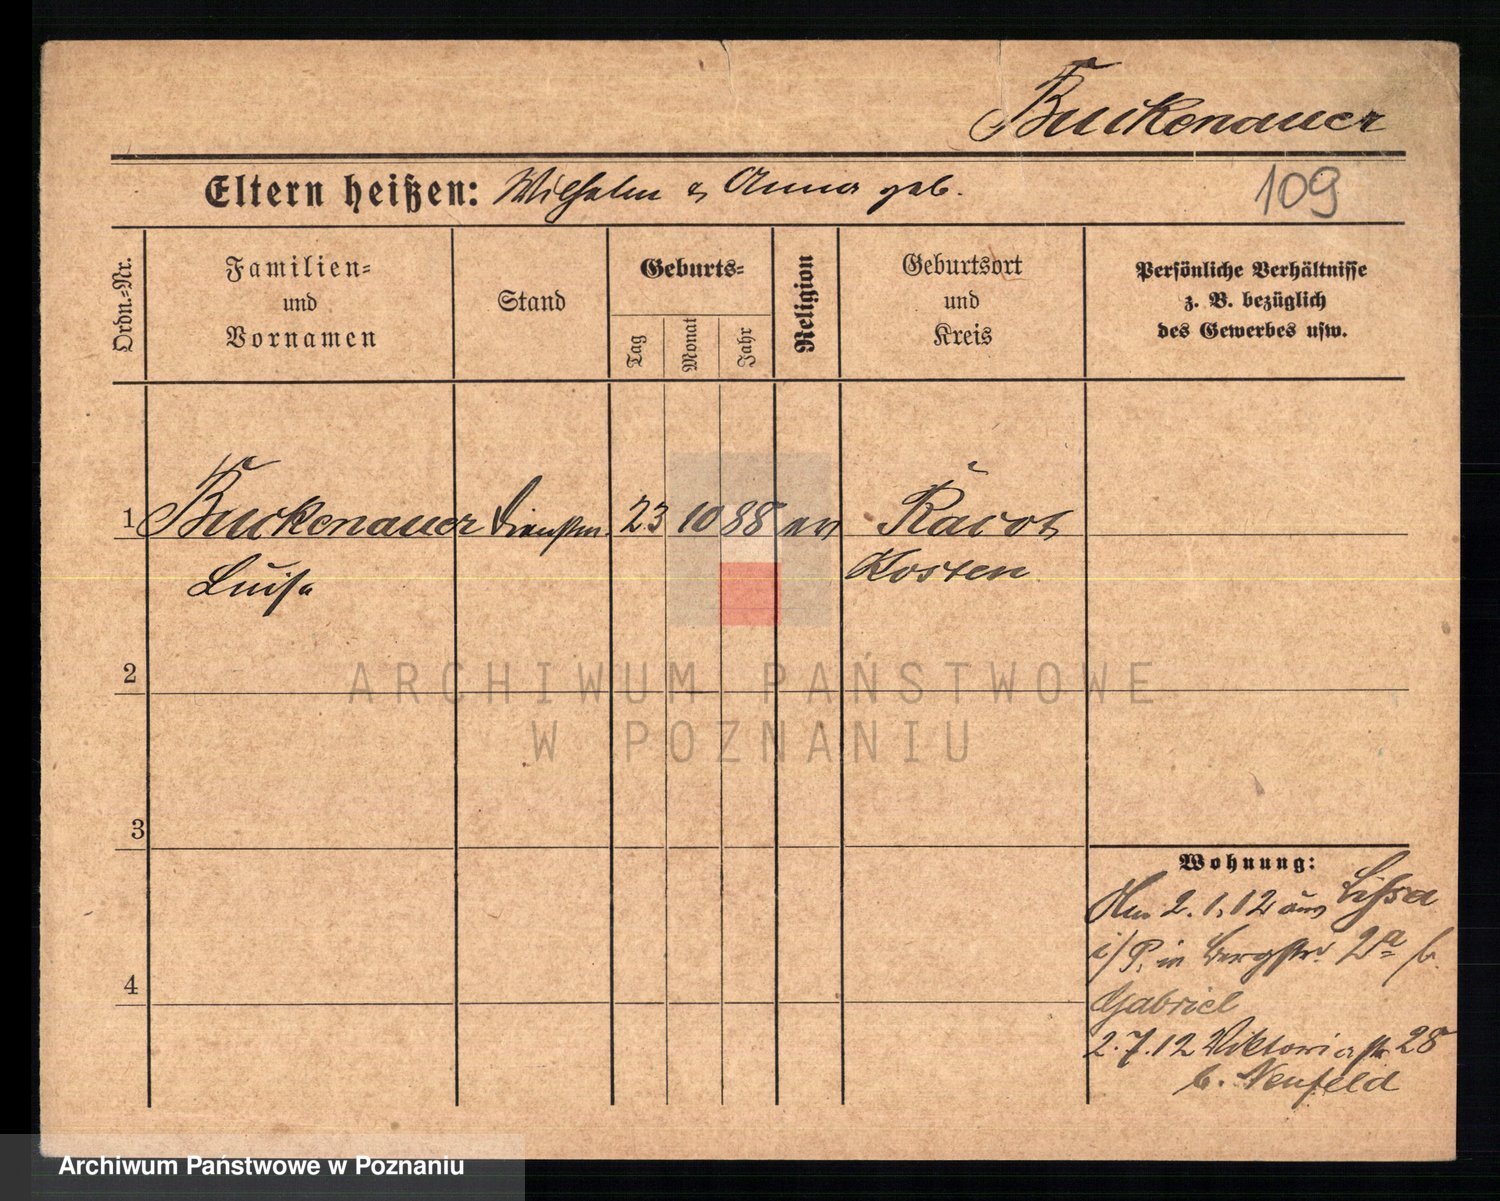 Buckenauer
Eltern heißen: Wilhelm & Anna geb.
109
Ordn.-Nr.
Familien-
und
Vornamen
Stand
Geburts-
Tag
Monat
Jahr
Religion
Geburtsort
und
Kreis
Persönliche Verhältnisse
z. B. bezüglich
des Gewerbes usw.
1 Buckenauer Dienstm. 23 10 88 ev Racot
Luise Kosten
2
3
4
Wohnung:
Am 2.1.12 aus Lissa
i/P. in Bergstr. 2a b.
Gabriel
2.7.12 Viktoriastr 28
b. Neufeld
ARCHIWUM PAŃSTWOWE
W POZNANIU
Archiwum Państwowe w Poznaniu